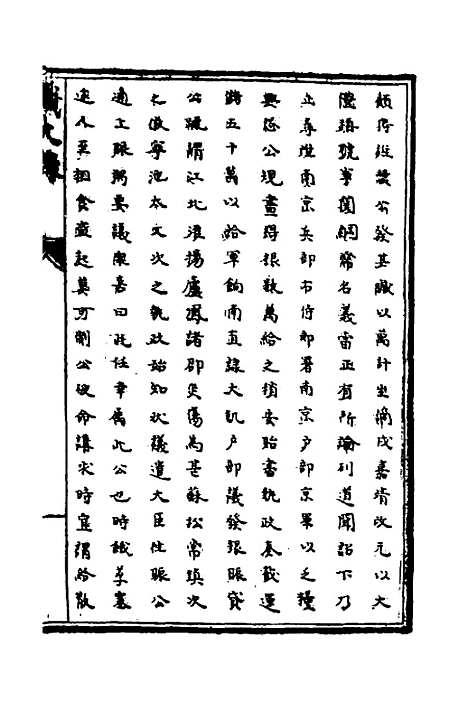 頗得發其贓以萬計坐謫戍嘉靖改元以大
禮號事關綱常名義當正有所論列道聞詔下乃
止尋陞南京兵部右侍郎署南京戶部京軍以乏糧
興怨公規畫得銀數萬給之稍安貽書執政奏截運
儲五十萬以給軍餉南直隸大飢戶部議發銀賑貸
公疏謂江北淮揚廬鳳諸郡災傷為甚蘇松常鎮次
之徽寧池太又次之執政始知次議遣大臣往賑公
適上賑粥要議嘉曰此任專屬此公也時餓莩塞
途人至相食盜起莫可制公使命講求時宜謂給散